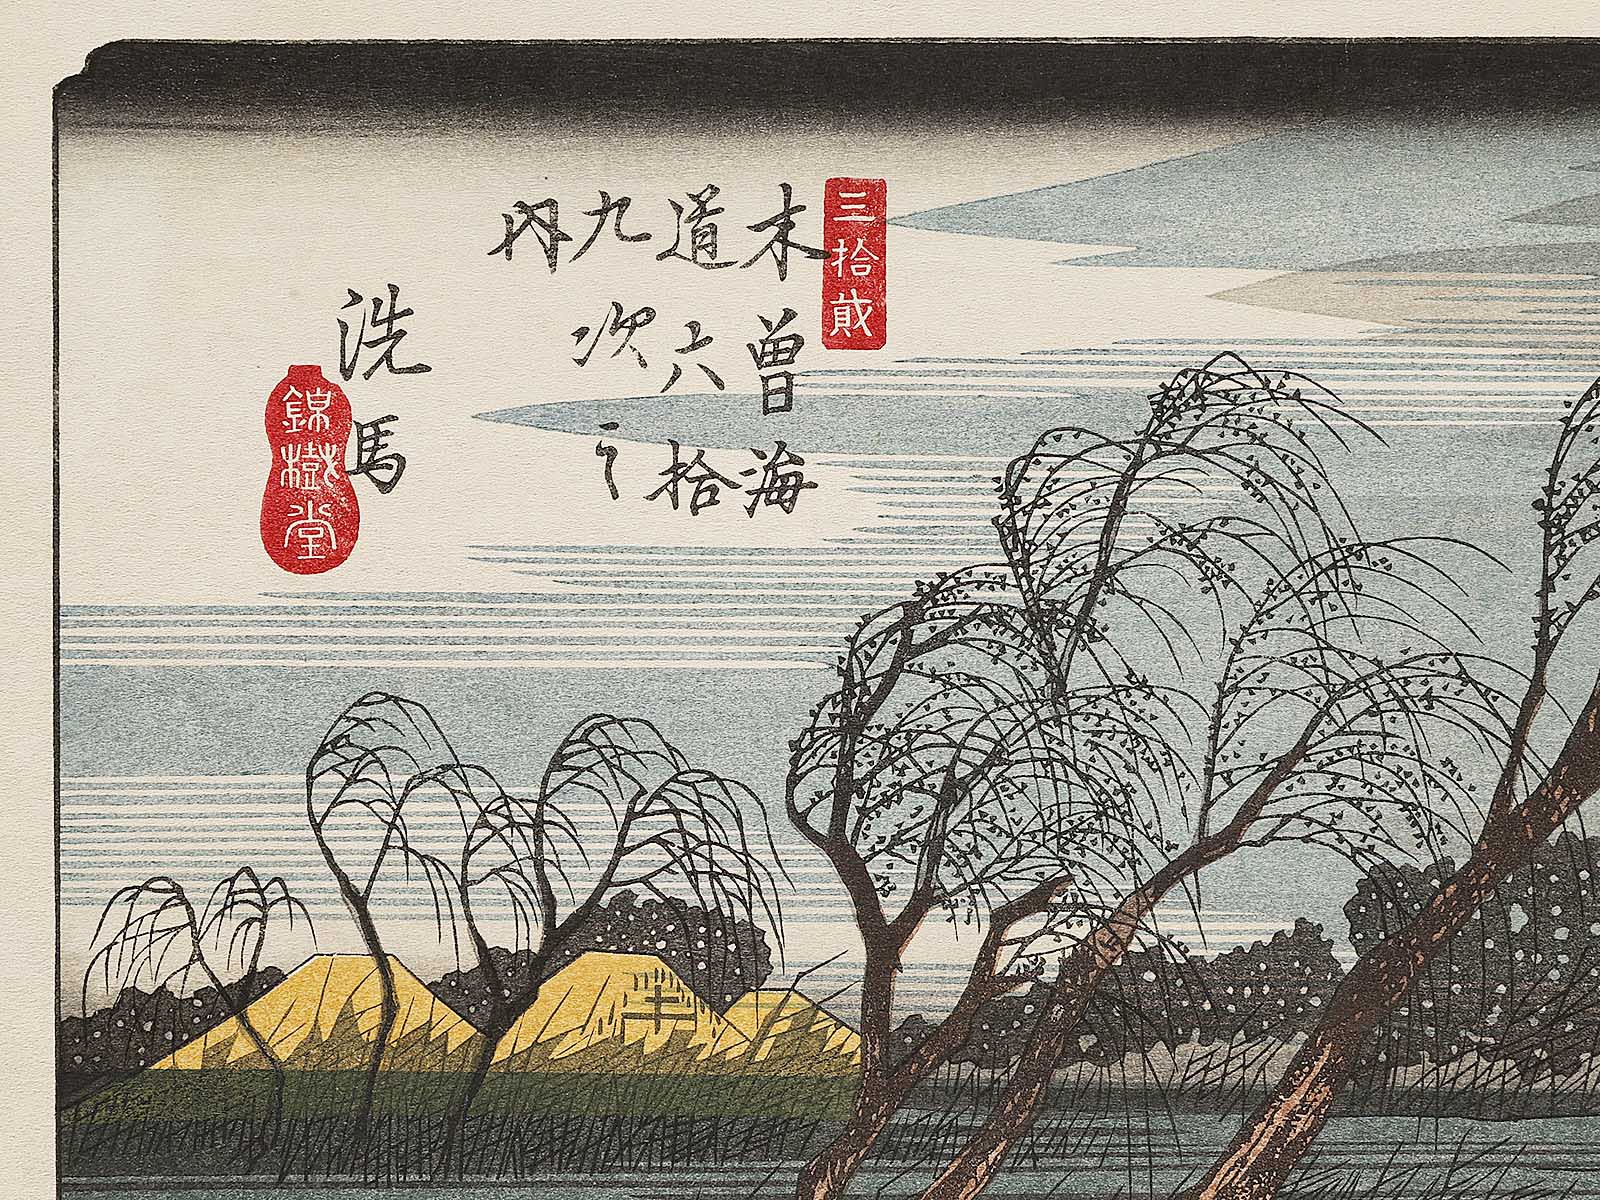 三拾貳
木曾海
道六拾
九次之
内
洗馬
錦樹堂